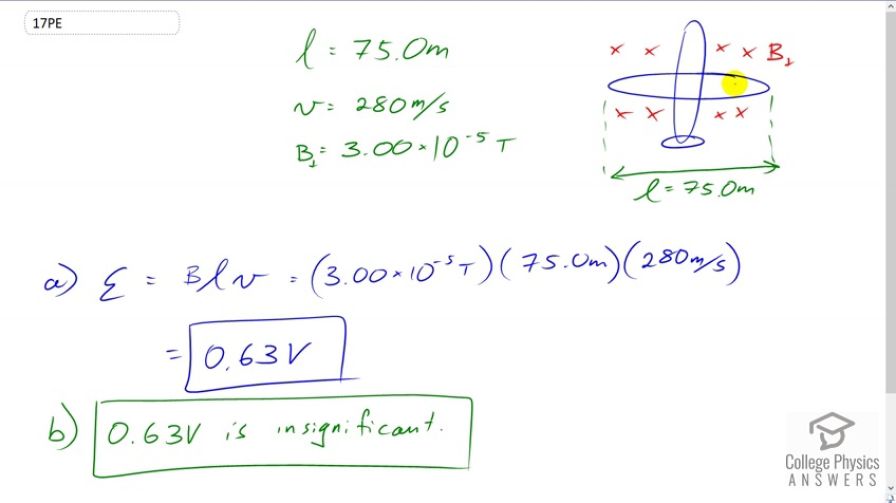 17PE
l = 75.0m
v = 280m/s
B⊥ = 3.00×10⁻⁵ T
× × × × B⊥
× × × ×
l = 75.0m
a) ε = Blv = (3.00×10⁻⁵T)(75.0m)(280m/s)
= 0.63V
b) 0.63V is insignificant.
College Physics
ANSWERS